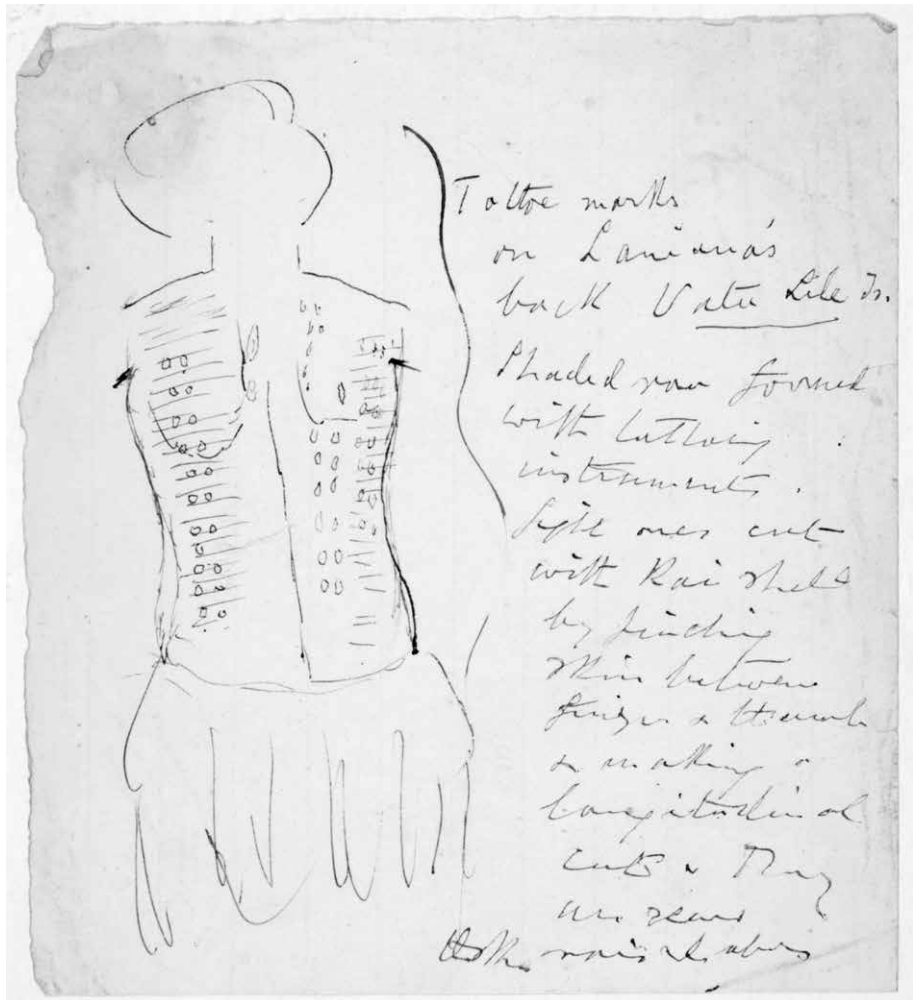 Tattoe marks
on Laniana's
back Vatu Lele Is.
Shaded row formed
with tattooing
instruments.
Light ones cut
with Kai shells
by pinching
skin between
finger & thumb
& making a
longitudinal
cut & They
are scars
raised above